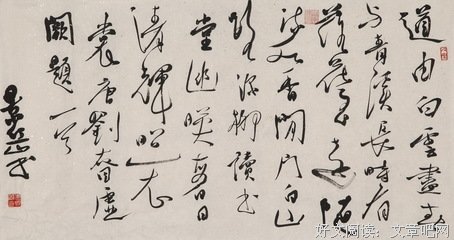 道由白雲盡春
与青溪長時有
落花至遠随
流水香閒門向山
路深柳讀書
堂幽映每白日
清輝照衣
裳唐劉眘虛
闕題一首
书
好文阅读：文章吧网